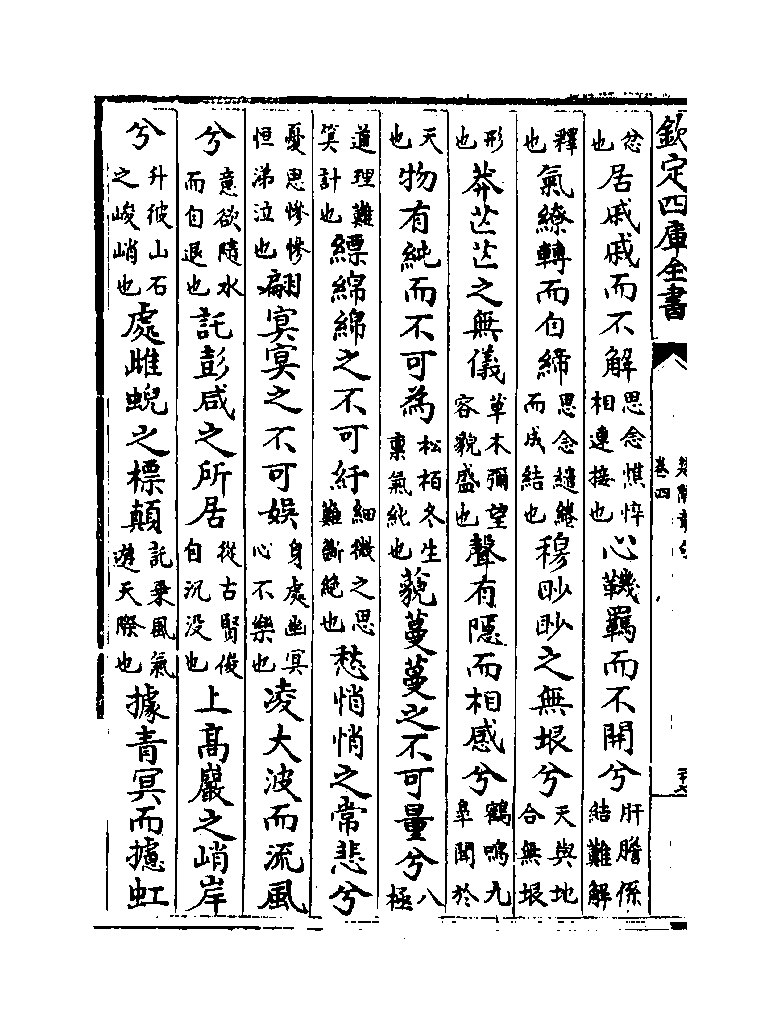 欽定四庫全書
楚辭章句
卷四
忿也居戚戚而不解思念憔悴相連接也心鞿羈而不開兮肝膽係結難解
釋也氣繚轉而自締思念繾綣而成結也穆眇眇之無垠兮天與地合無垠
形也莽芒芒之無儀草木彌望容貌盛也聲有隱而相感兮鶴鳴九臯聞於
天也物有純而不可為松栢冬生稟氣純也藐蔓蔓之不可量兮八極
道理難筭計也縹綿綿之不可紆細微之思難斷絶也愁悄悄之常悲兮
憂思慘慘恒涕泣也翩冥冥之不可娛身處幽冥心不樂也凌大波而流風
兮意欲隨水而自退也託彭咸之所居從古賢俊自沉没也上高巖之峭岸
兮升彼山石之峻峭也處雌蜺之標顛託乗風氣遊天際也據青冥而攄虹